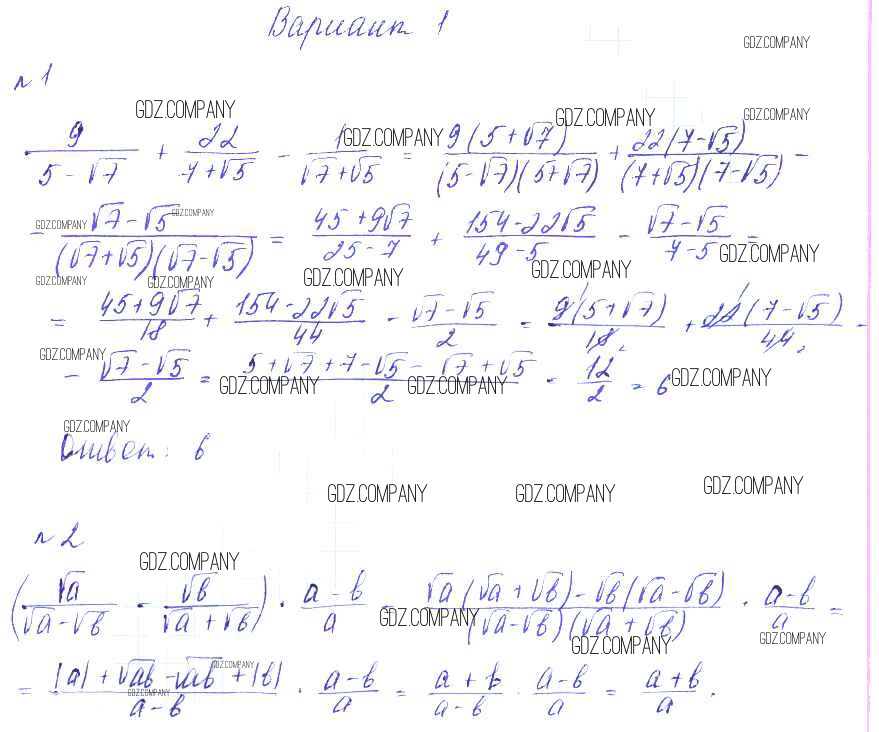 Вариант 1
GDZ.COMPANY
№1
GDZ.COMPANY GDZ.COMPANY GDZ.COMPANY GDZ.COMPANY
9/(5-√7) + 22/(7+√5) - 1/(√7+√5) = 9(5+√7)/((5-√7)(5+√7)) + 22(7-√5)/((7+√5)(7-√5)) -
GDZ.COMPANY GDZ.COMPANY
- (√7-√5)/((√7+√5)(√7-√5)) = (45+9√7)/(25-7) + (154-22√5)/(49-5) - (√7-√5)/(7-5) =
GDZ.COMPANY GDZ.COMPANY GDZ.COMPANY GDZ.COMPANY GDZ.COMPANY
= (45+9√7)/18 + (154-22√5)/44 - (√7-√5)/2 = 9(5+√7)/18 + 22(7-√5)/44 -
GDZ.COMPANY
- (√7-√5)/2 = (5+√7+7-√5-√7+√5)/2 = 12/2 = 6
GDZ.COMPANY GDZ.COMPANY GDZ.COMPANY
GDZ.COMPANY
Ответ: 6
GDZ.COMPANY GDZ.COMPANY GDZ.COMPANY
№2
GDZ.COMPANY
(√a/(√a-√b) - √b/(√a+√b)) · (a-b)/a = (√a(√a+√b)-√b(√a-√b))/((√a-√b)(√a+√b)) · (a-b)/a =
GDZ.COMPANY GDZ.COMPANY GDZ.COMPANY
= (|a|+√ab-√ab+|b|)/(a-b) · (a-b)/a = (a+b)/(a-b) · (a-b)/a = (a+b)/a.
GDZ.COMPANY GDZ.COMPANY